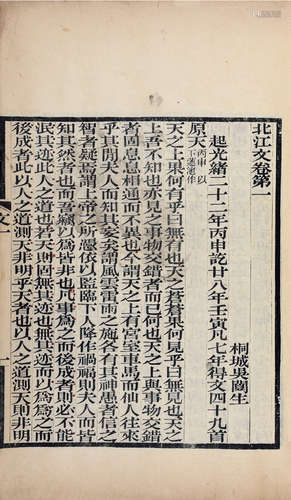 北江文卷第一
桐城吳闓生
起光緒二十二年丙申訖廿八年壬寅凡七年得文四十九首
原天丙申以下蓮池作
天之上果何有也天之蒼蒼果何見乎曰無見也曰天之
上吾不知也亦見之事物交錯者而已何也天之上與事物交錯
者固息息相通而不異也今謂天之上有宮室車馬而仙人往來
乎其間夫人而知其妄矣謂風雲雷雨之施各有其神愚者信之
智者疑焉謂上帝之所憑依以監臨下人降作禍福則夫人而皆
知其然者也而吾竊以為皆非也凡事為之而後成者則必不能
泯其迹此人之道也若天則固無其迹也無其迹而以為為之而
後成者此以人之道測天非明乎天者也以人之道測天則非明
文一
一